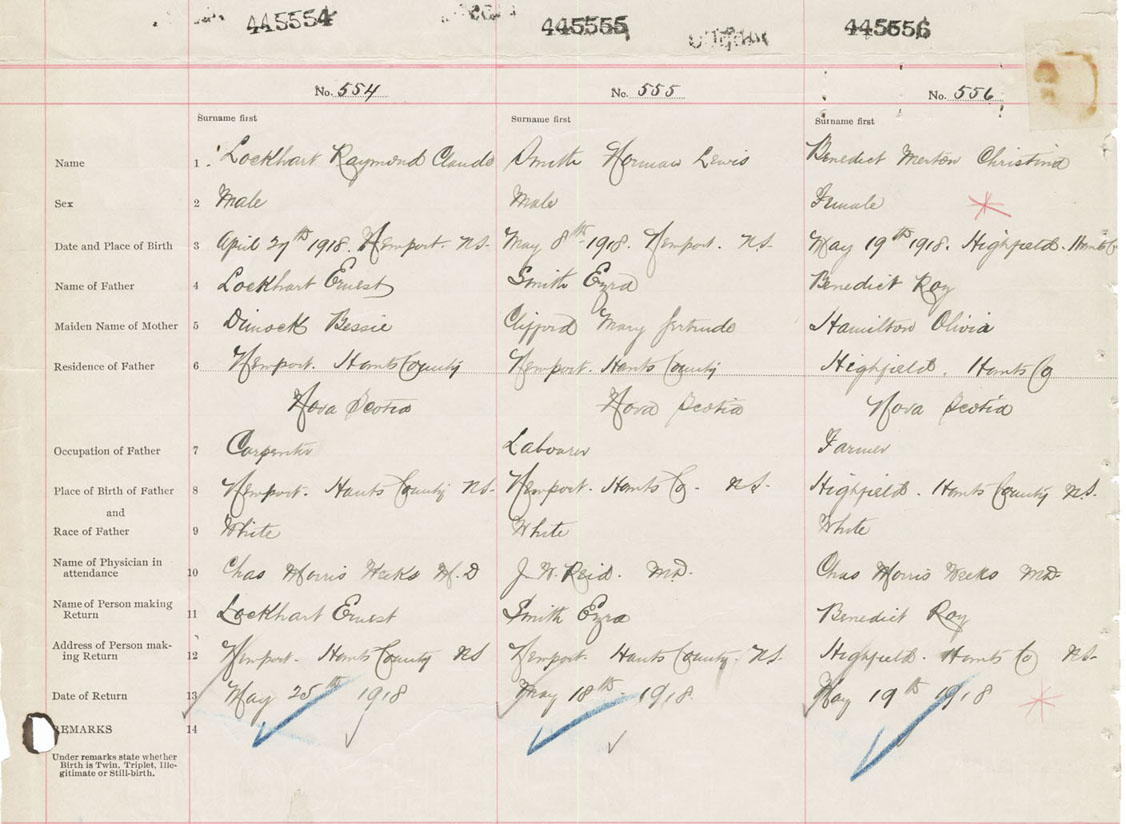 445554 445555 445556
No. 554 No. 555 No. 556
Surname first Surname first Surname first
Name 1 Lockhart Raymond Claude Smith Herman Lewis Benedict Merton Christina
Sex 2 Male Male Female
Date and Place of Birth 3 April 27th 1918. Newport. NS. May 8th 1918. Newport. NS. May 19th 1918. Highfield. Hants Co
Name of Father 4 Lockhart Ernest Smith Ezra Benedict Roy
Maiden Name of Mother 5 Dimock Bessie Clifford Mary Gertrude Hamilton Olivia
Residence of Father 6 Newport. Hants County Newport. Hants County Highfield. Hants Co
Nova Scotia Nova Scotia Nova Scotia
Occupation of Father 7 Carpenter Labourer Farmer
Place of Birth of Father 8 Newport. Hants County NS. Newport. Hants Co. NS. Highfield. Hants County NS.
and
Race of Father 9 White White White
Name of Physician in
attendance 10 Chas Morris Weeks M.D J. W. Reid. MD. Chas Morris Weeks MD.
Name of Person making
Return 11 Lockhart Ernest Smith Ezra Benedict Roy
Address of Person mak-
ing Return 12 Newport. Hants County NS Newport. Hants County. NS. Highfield. Hants Co NS.
Date of Return 13 May 25th 1918 May 18th 1918. May 19th 1918
REMARKS 14
Under remarks state whether
Birth is Twin, Triplet, Ille-
gitimate or Still-birth.